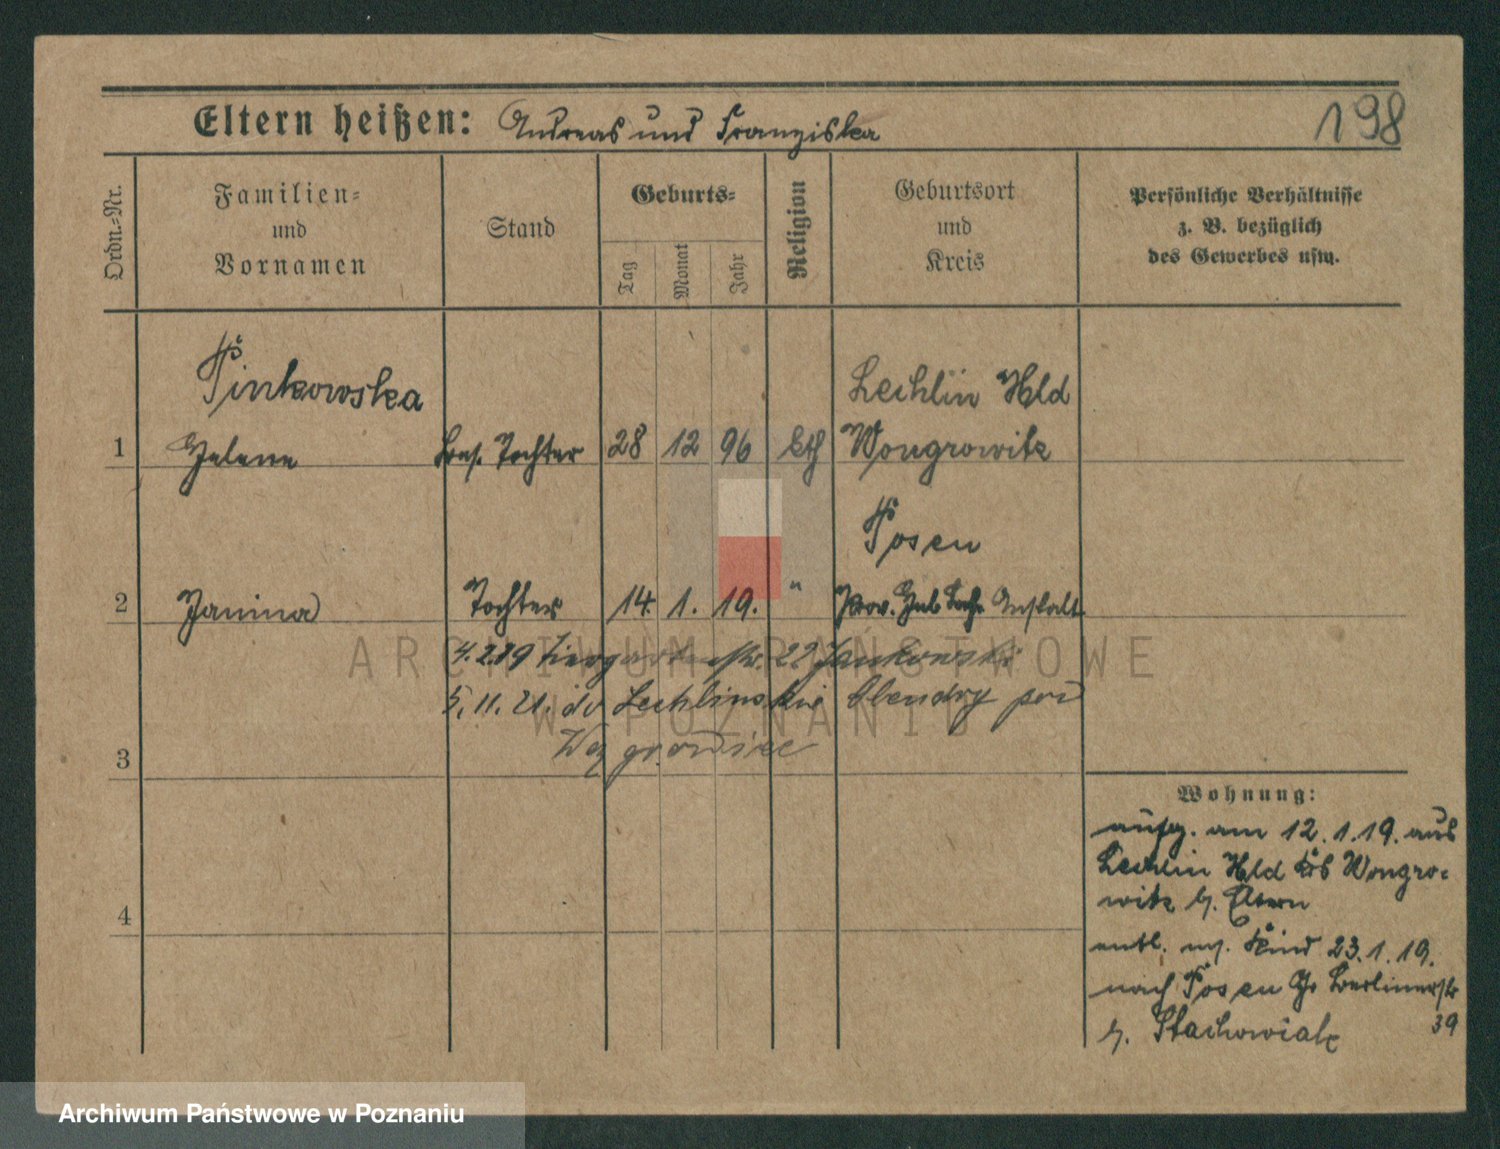 Eltern heißen: Andreas und Franziska
198
Ordn.-Nr.
Familien-
und
Vornamen
Stand
Geburts-
Tag
Monat
Jahr
Religion
Geburtsort
und
Kreis
Persönliche Verhältnisse
z. B. bezüglich
des Gewerbes usw.
Pinkowska
Lechlin Hld
1 Helene Bes. Tochter 28 12 96 kth Wongrowitz
Posen
2 Janina Tochter 14. 1. 19. " Prov. Heb Anstalt
4.2.19 Tiergartenstr. 22 Jankowski
5.11.21. do Lechlinskie Olendry pod
Wągrowiec
3
4
Wohnung:
aufg. am 12.1.19. aus
Lechlin Hld Krs Wongro-
witz b. Eltern
entl. m. Kind 23.1.19.
nach Posen Gr Berlinerstr
39
b. Stachowiak
ARCHIWUM PAŃSTWOWE
W POZNANIU
Archiwum Państwowe w Poznaniu